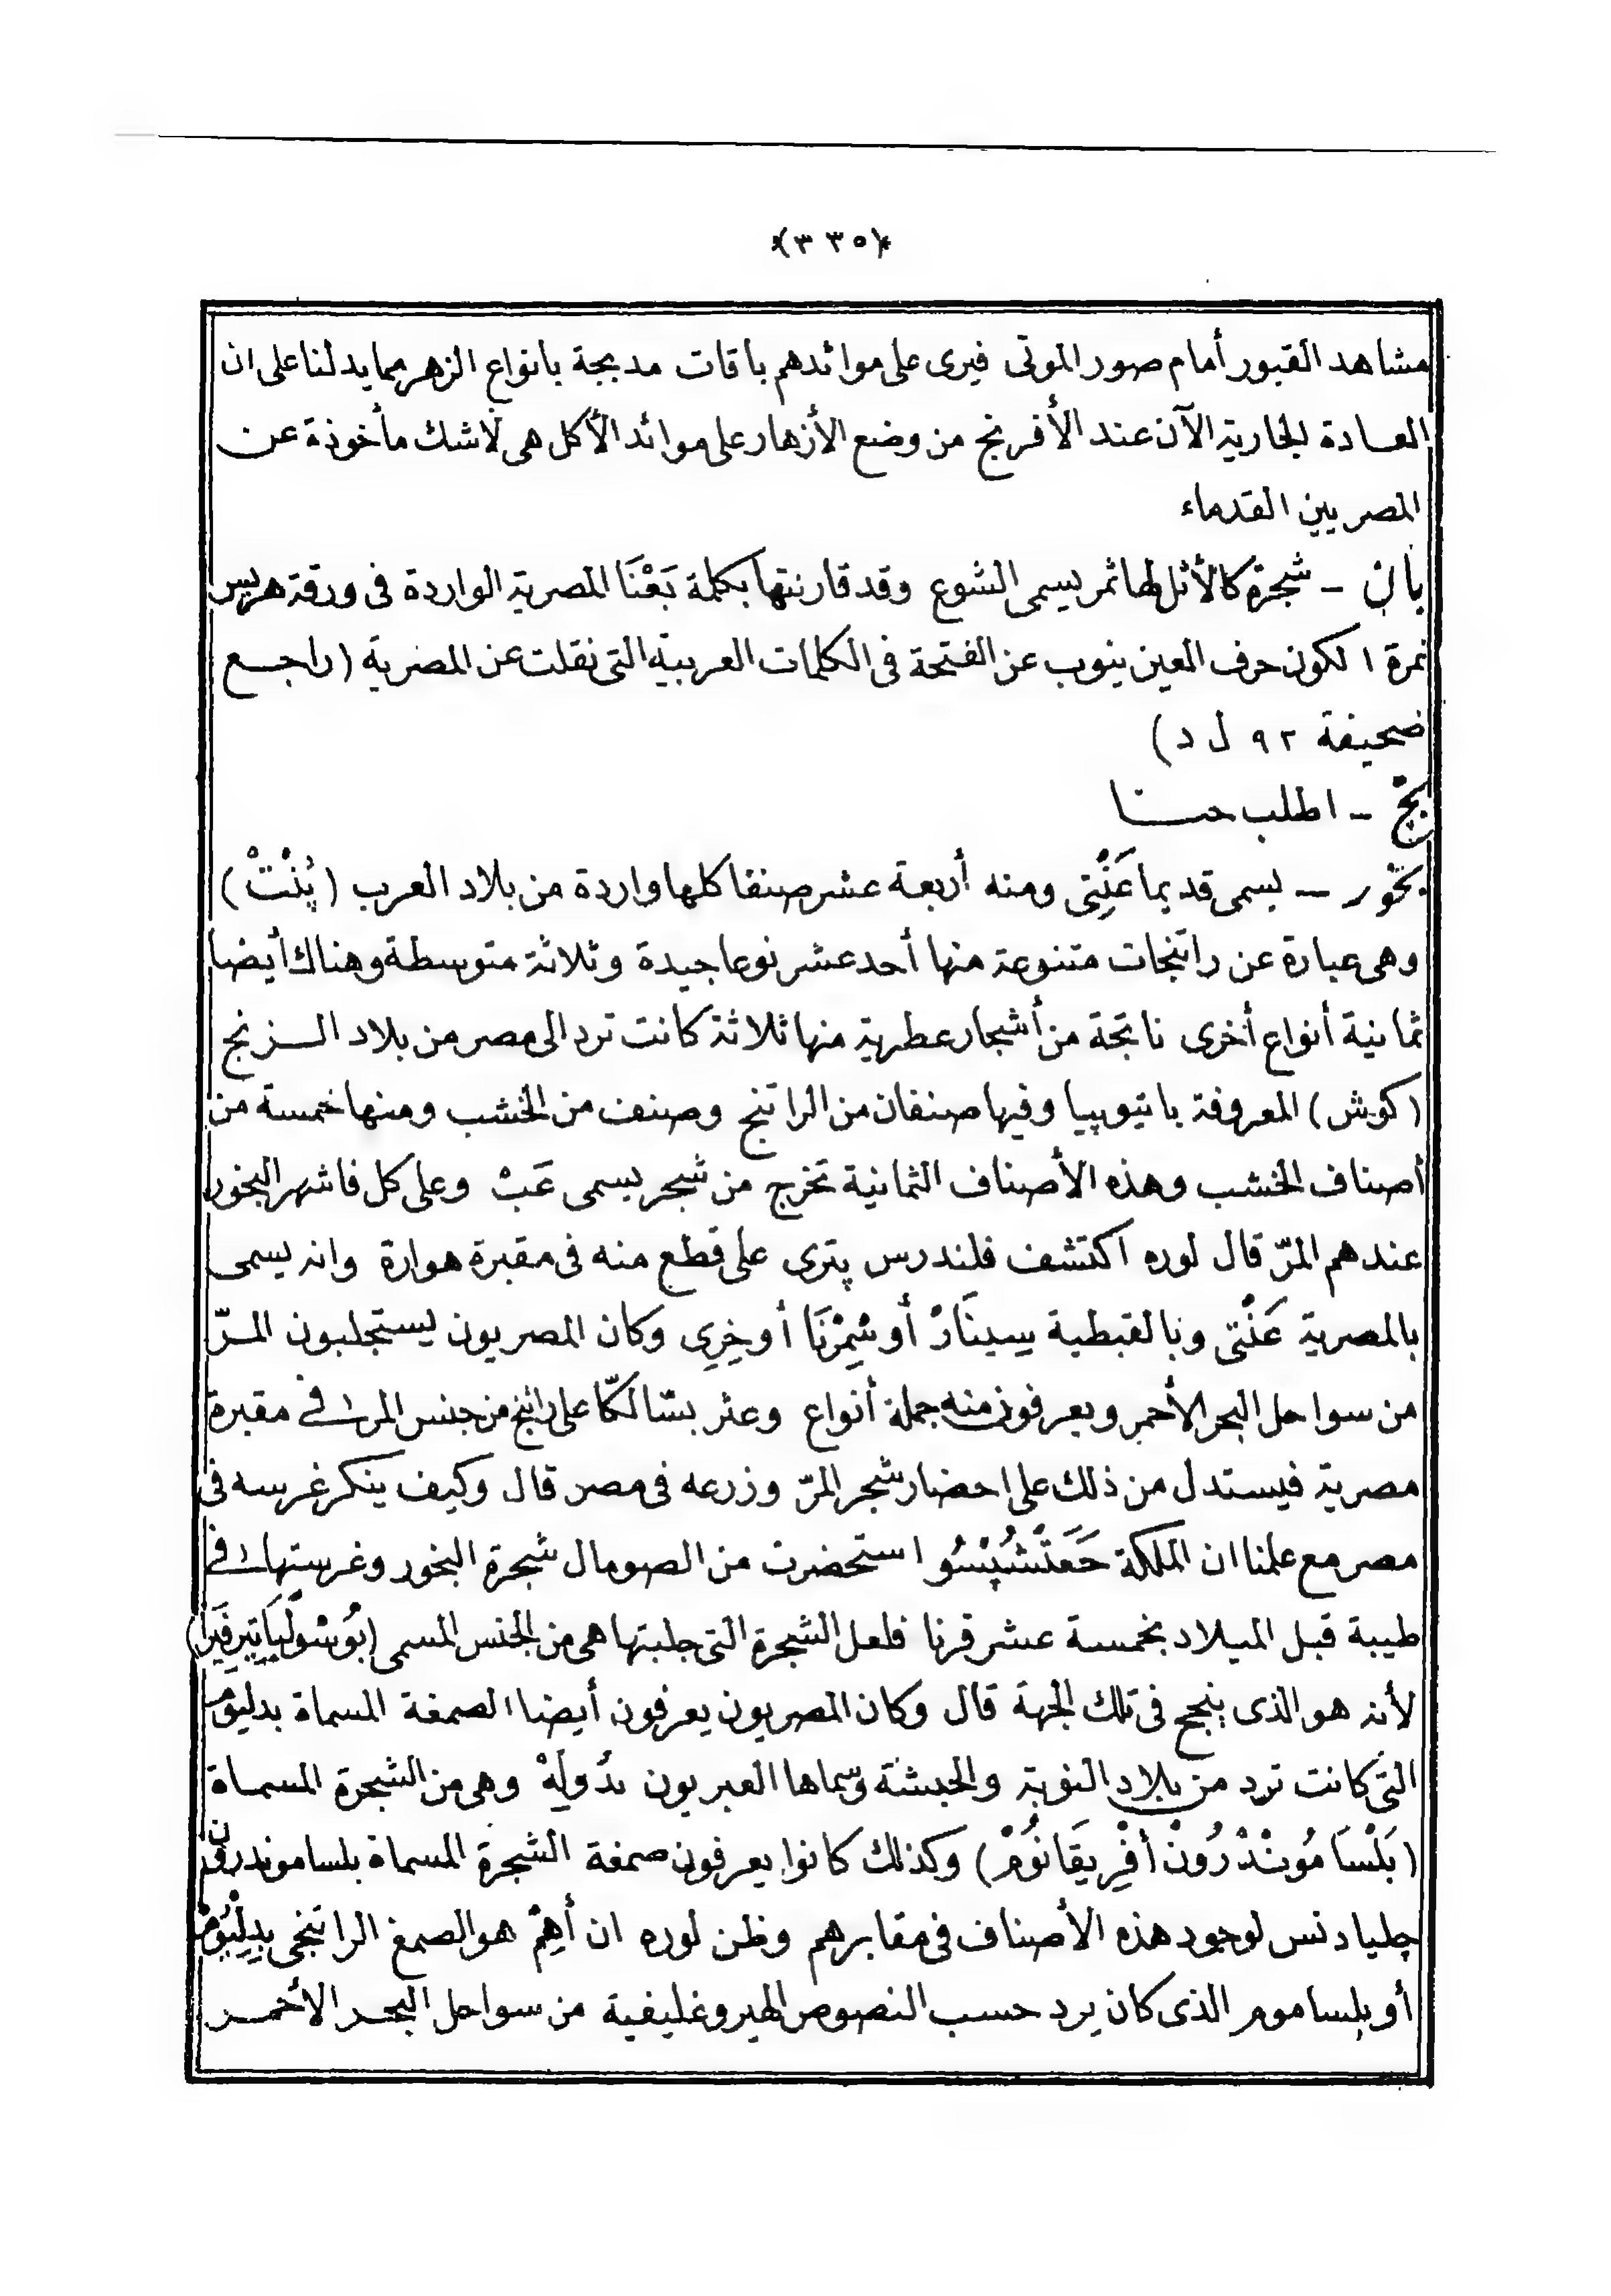 ﴿٣٣٥﴾
مشاهد القبور أمام صور الموتى فيرى على موائدهم باقات مدبجة بانواع الزهر مما يدلنا على ان
العادة الجارية الآن عند الأفرنج من وضع الأزهار على موائد الأكل هى لاشك مأخوذة عن
المصريين القدماء
بان – شجرة كالأثل لها ثمر يسمى الشوع وقد قارنتها بكلمة بَعْنَا المصرية الواردة فى ورقة هريس
نمرة ١ لكون حرف العين ينوب عن الفتحة فى الكلمات العربية التى نقلت عن المصرية (راجع
صحيفة ٩٢ ل د)
بج – اطلب حنا
بخور – يسمى قديما عَنْتِى ومنه أربعة عشر صنفا كلها واردة من بلاد العرب (پُنْتْ)
وهى عبارة عن راتنجات متنوعة منها أحد عشر نوعا جيدة وثلاثة متوسطة وهناك أيضا
ثمانية أنواع أخرى ناتجة من أشجار عطرية منها ثلاثة كانت ترد الى مصر من بلاد الزنج
(كوش) المعروفة باتيوپيا وفيها صنفان من الراتنج وصنف من الخشب ومنها خمسة من
أصناف الخشب وهذه الأصناف الثمانية تخرج من شجر يسمى عَبْ وعلى كل فاشهر البخور
عندهم المرّ قال لوره اكتشف فلندرس پترى على قطع منه فى مقبرة هوارة وانه يسمى
بالمصرية عَنْتِى وبالقبطية سِينَارْ أو شِمِرْنَا أو خِرِى وكان المصريون يستجلبون المرّ
من سواحل البحر الأحمر ويعرفون منه جملة أنواع وعثر بشالكّا على راتنج من جنس المر فى مقبرة
مصرية فيستدل من ذلك على احضار شجر المرّ وزرعه فى مصر قال وكيف ينكر غرسه فى
مصر مع علمنا ان الملكة حَعَتْشُپْسُو استحضرت من الصومال شجرة البخور وغرستها فى
طيبة قبل الميلاد بخمسة عشر قرنا فلعل الشجرة التى جلبتها هى من الجنس المسمى
لأنه هو الذى ينجح فى تلك الجهة قال وكان المصريون يعرفون أيضا الصمغة المسماة بدليوم
التى كانت ترد من بلاد النوبة والحبشة وسماها العبريون بدُولَهْ وهى من الشجرة المسماة
(بَلْسَامُونْدْرُونْ أفْرِيقَانُومْ) وكذلك كانوا يعرفون صمغة الشجرة المسماة بلساموندرون
چليادنس لوجود هذه الأصناف فى مقابرهم وظن لوره ان أهِمْ هو الصمغ الراتنجى بِدِلْيُومْ
أو بلساموم الذى كان يرد حسب النصوص الهيروغليفية من سواحل البحر الاحمر